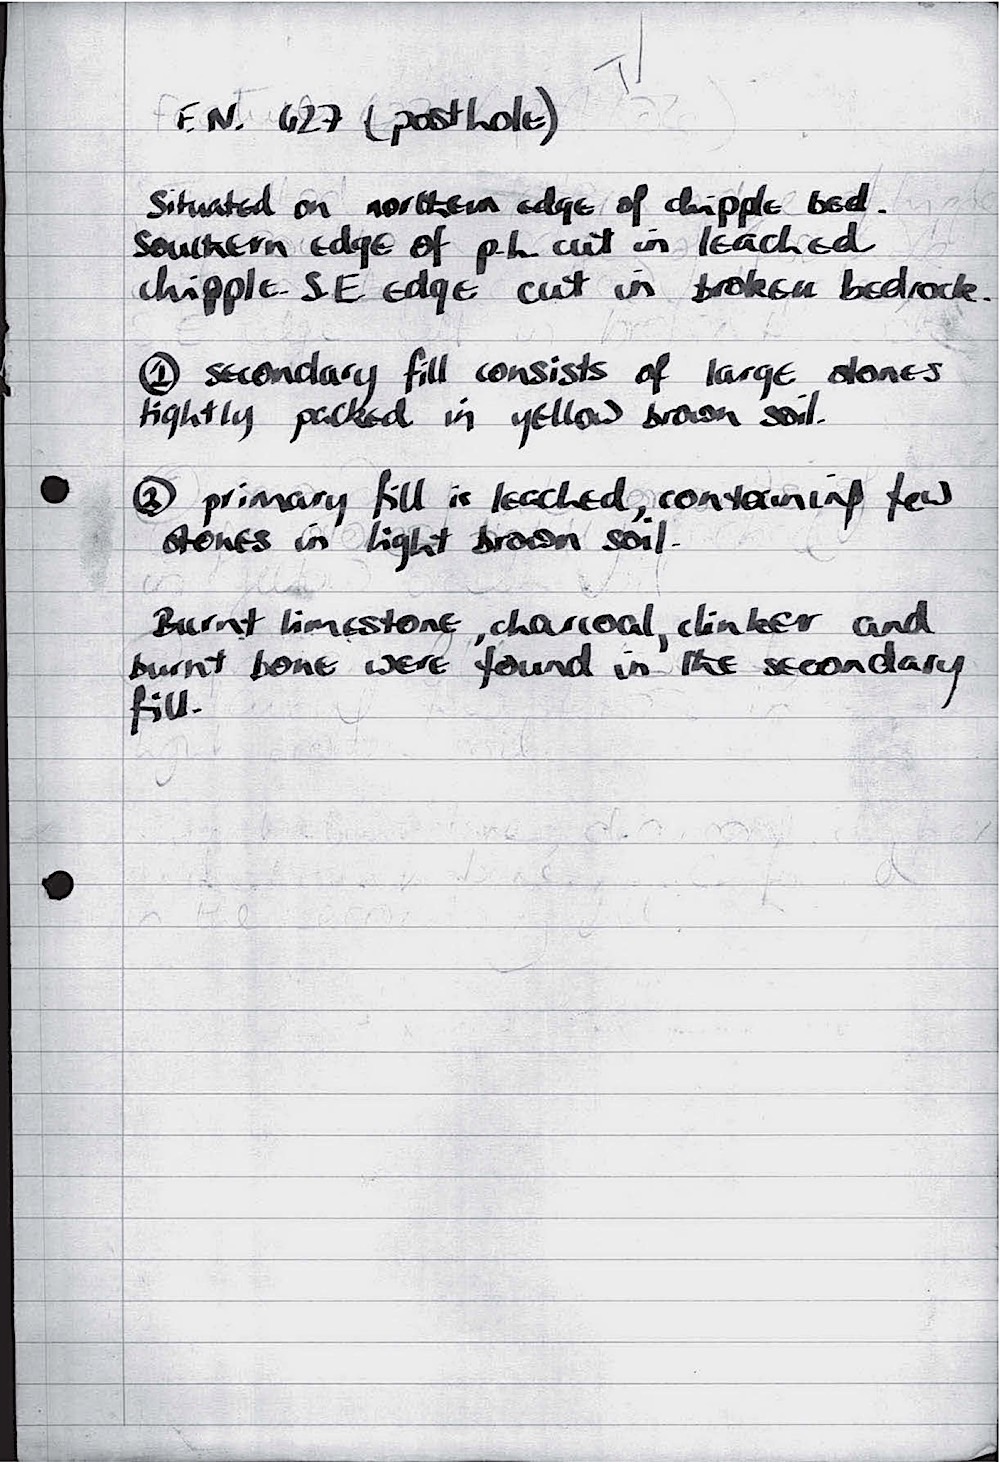 F.N. 627 (posthole)
Situated on northern edge of chipple bed.
Southern edge of p.h. cut in leached
chipple. S.E edge cut in broken bedrock.
① secondary fill consists of large stones
tightly packed in yellow brown soil.
② primary fill is leached, containing few
stones in light brown soil.
Burnt limestone, charcoal, clinker and
burnt bone were found in the secondary
fill.